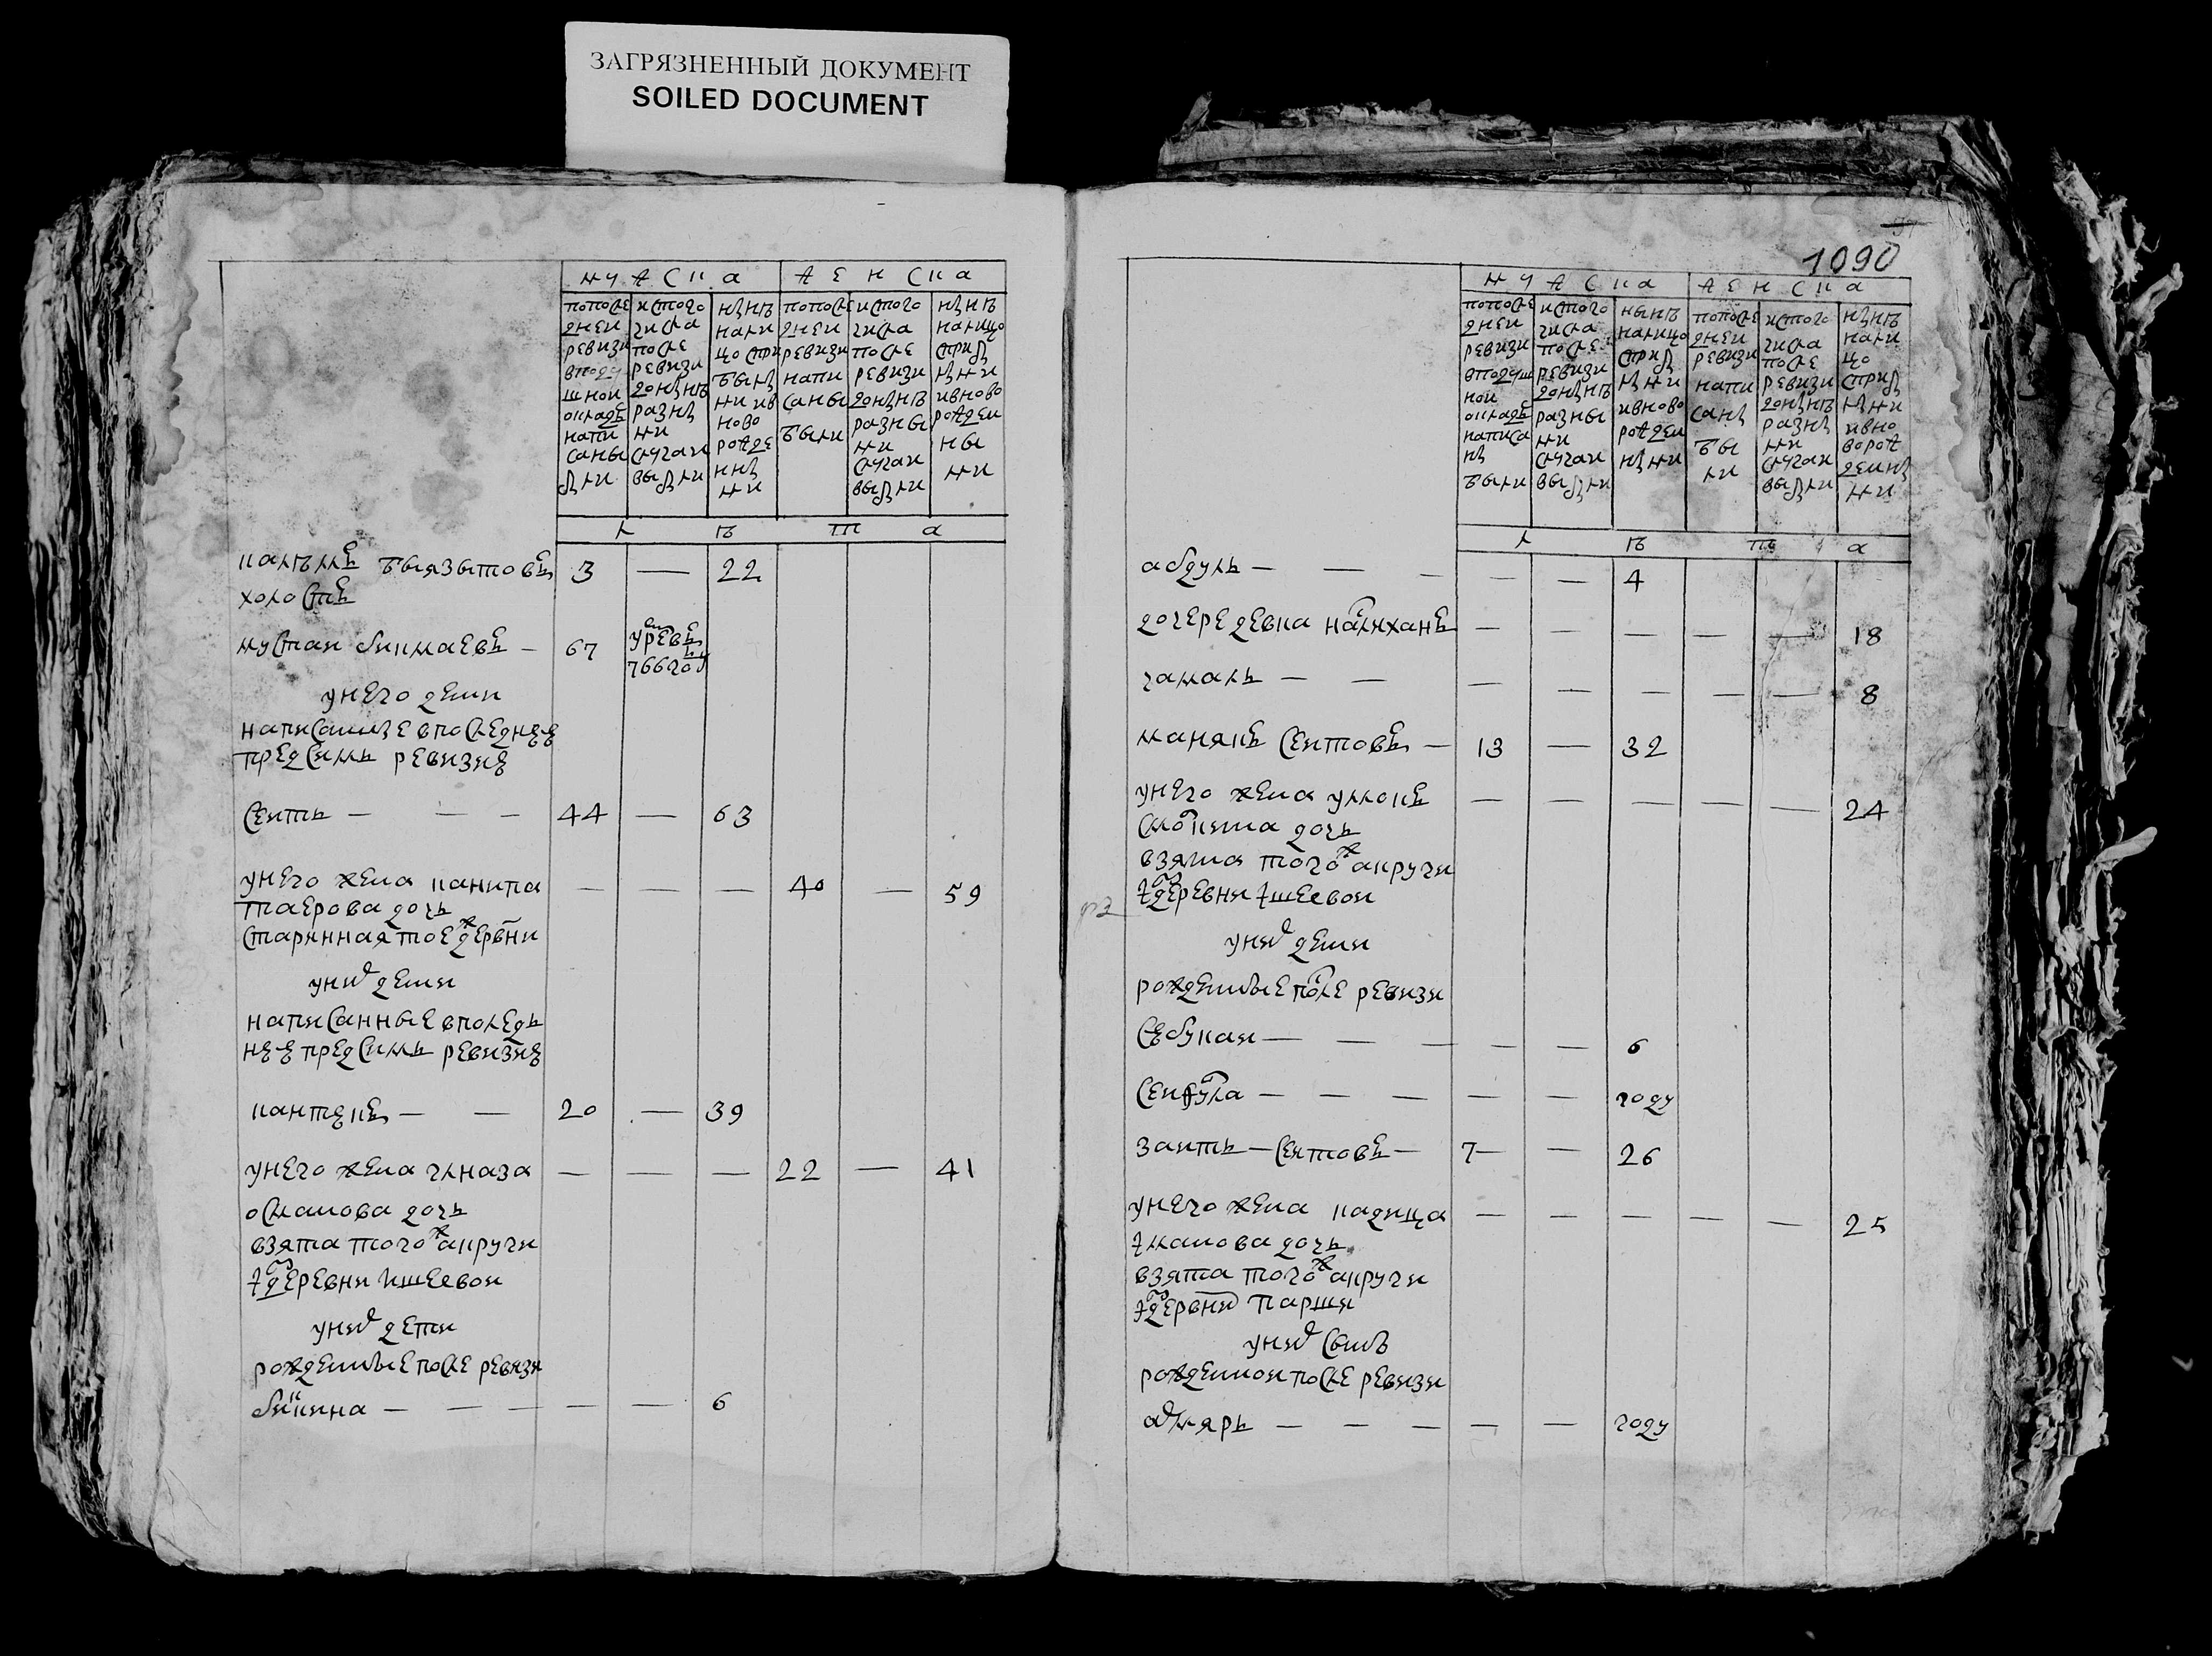 ЗАГРЯЗНЕННЫЙ ДОКУМЕНТ
SOILED DOCUMENT
мужска женска
попосле
дней
ревизи
вподу
шной
окладе
напи
саны
были
истого
числа
после
ревизи
доныне
разны
ми
случаи
выбыли
ныне
нали
цо при
былы
ми ив
ново
рожде
нны
ми
попосле
дней
ревизи
напи
саны
были
истого
числа
после
ревизи
доныне
разны
ми
случаи
выбыли
ныне
налицо
прибы
лыми
ивново
рожден
ны
ми
лета
калмке бызытове 3 — 22
холосте
мустаи бикмаеве — 67 умре в 766 году
унего дети
написаные впоследнее
пред сим ревизие
сеить — — — 44 — 63
унего жена канипа — — — 40 — 59
таерова дочь
старинная тое ж деревни
уних дети
написанные впоследь
нее пред симъ ревизие
кантеке — — 20 — 39
унего жена глназа — — — 22 — 41
османова дочь
взята того ж округи
из деревни ишеевои
уних дети
рожденные после ревизи
бикина — — — — — 6
1090
мужска женска
попосле
дней
ревизи
вподуш
ной
окладе
написа
ны
были
истого
числа
после
ревизи
доныне
разны
ми
случаи
выбыли
ныне
налицо
прибы
лыми
ивново
рожден
ными
попосле
дней
ревизи
напи
саны
бы
ли
истого
числа
после
ревизи
доныне
разны
ми
случаи
выбыли
ныне
нали
цо
прибы
лыми
ивно
ворож
денны
ми
лета
абдуль — — — — — 4
дочере девка налиханъ — — — — — 18
гамаль — — — — — — — 8
маняке сеитове — 13 — 32
унего жена уммоке — — — — — 24
смокита дочь
взята того ж округи
из деревни ишеевои
уних дети
рожденные после ревизи
себукаи — — — — — 6
сеифула — — — — — году
заить — сеитове — 7 — 26
унего жена кадища — — — — — 25
иманова дочь
взята того ж округи
из деревни парши
уних сынъ
рожденнои после ревизи
ахмярь — — — — — году